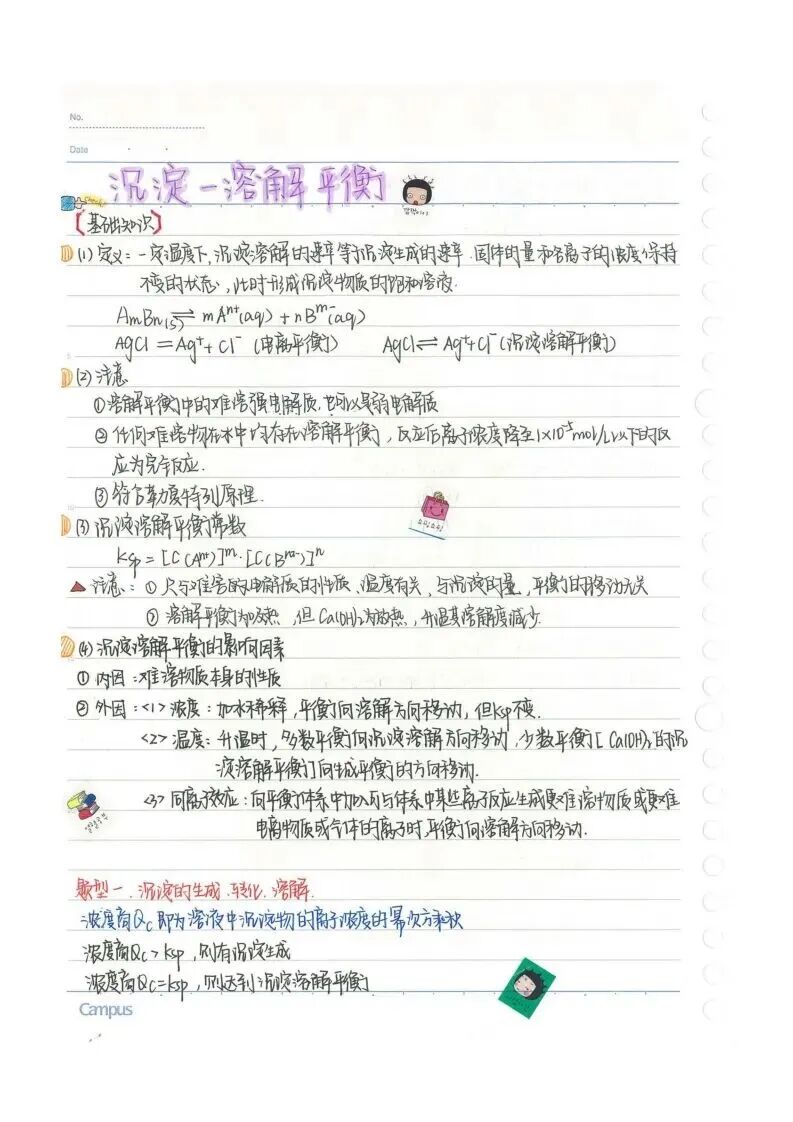 No.
Date
沉淀-溶解平衡
【基础知识】
(1) 定义：一定温度下，沉淀溶解的速率等于沉淀生成的速率，固体的量和各离子的浓度保持
不变的状态，此时形成沉淀物质的饱和溶液.
AmBn(s) ⇌ mAⁿ⁺(aq) + nBᵐ⁻(aq)
AgCl = Ag⁺ + Cl⁻ (电离平衡) AgCl ⇌ Ag⁺ + Cl⁻ (沉淀溶解平衡)
(2) 注意
①溶解平衡中的难溶强电解质，也可以是弱电解质
② 任何难溶物在水中均存在溶解平衡，反应后离子浓度降至1×10⁻⁵mol/L以下的反
应为完全反应.
③ 符合勒夏特列原理.
(3) 沉淀溶解平衡常数
Ksp = [C(Aⁿ⁺)]ᵐ·[C(Bᵐ⁻)]ⁿ
注意：① 只与难溶的电解质的性质、温度有关，与沉淀的量，平衡的移动无关
② 溶解平衡为吸热，但Ca(OH)₂为放热，升温其溶解度减少.
(4) 沉淀溶解平衡的影响因素
① 内因：难溶物质本身的性质
② 外因：<1> 浓度：加水稀释，平衡向溶解方向移动，但Ksp不变.
<2> 温度：升温时，多数平衡向沉淀溶解方向移动，少数平衡[Ca(OH)₂的沉
淀溶解平衡]向生成平衡的方向移动.
<3> 同离子效应：向平衡体系中加入可与体系中某些离子反应生成更难溶物质或更难
电离物质或气体的离子时，平衡向溶解方向移动.
题型一、沉淀的生成、转化、溶解.
浓度商Qc即为溶液中沉淀物的离子浓度的幂次方乘积
浓度商Qc > Ksp，则有沉淀生成
浓度商Qc = Ksp，则达到沉淀溶解平衡
Campus